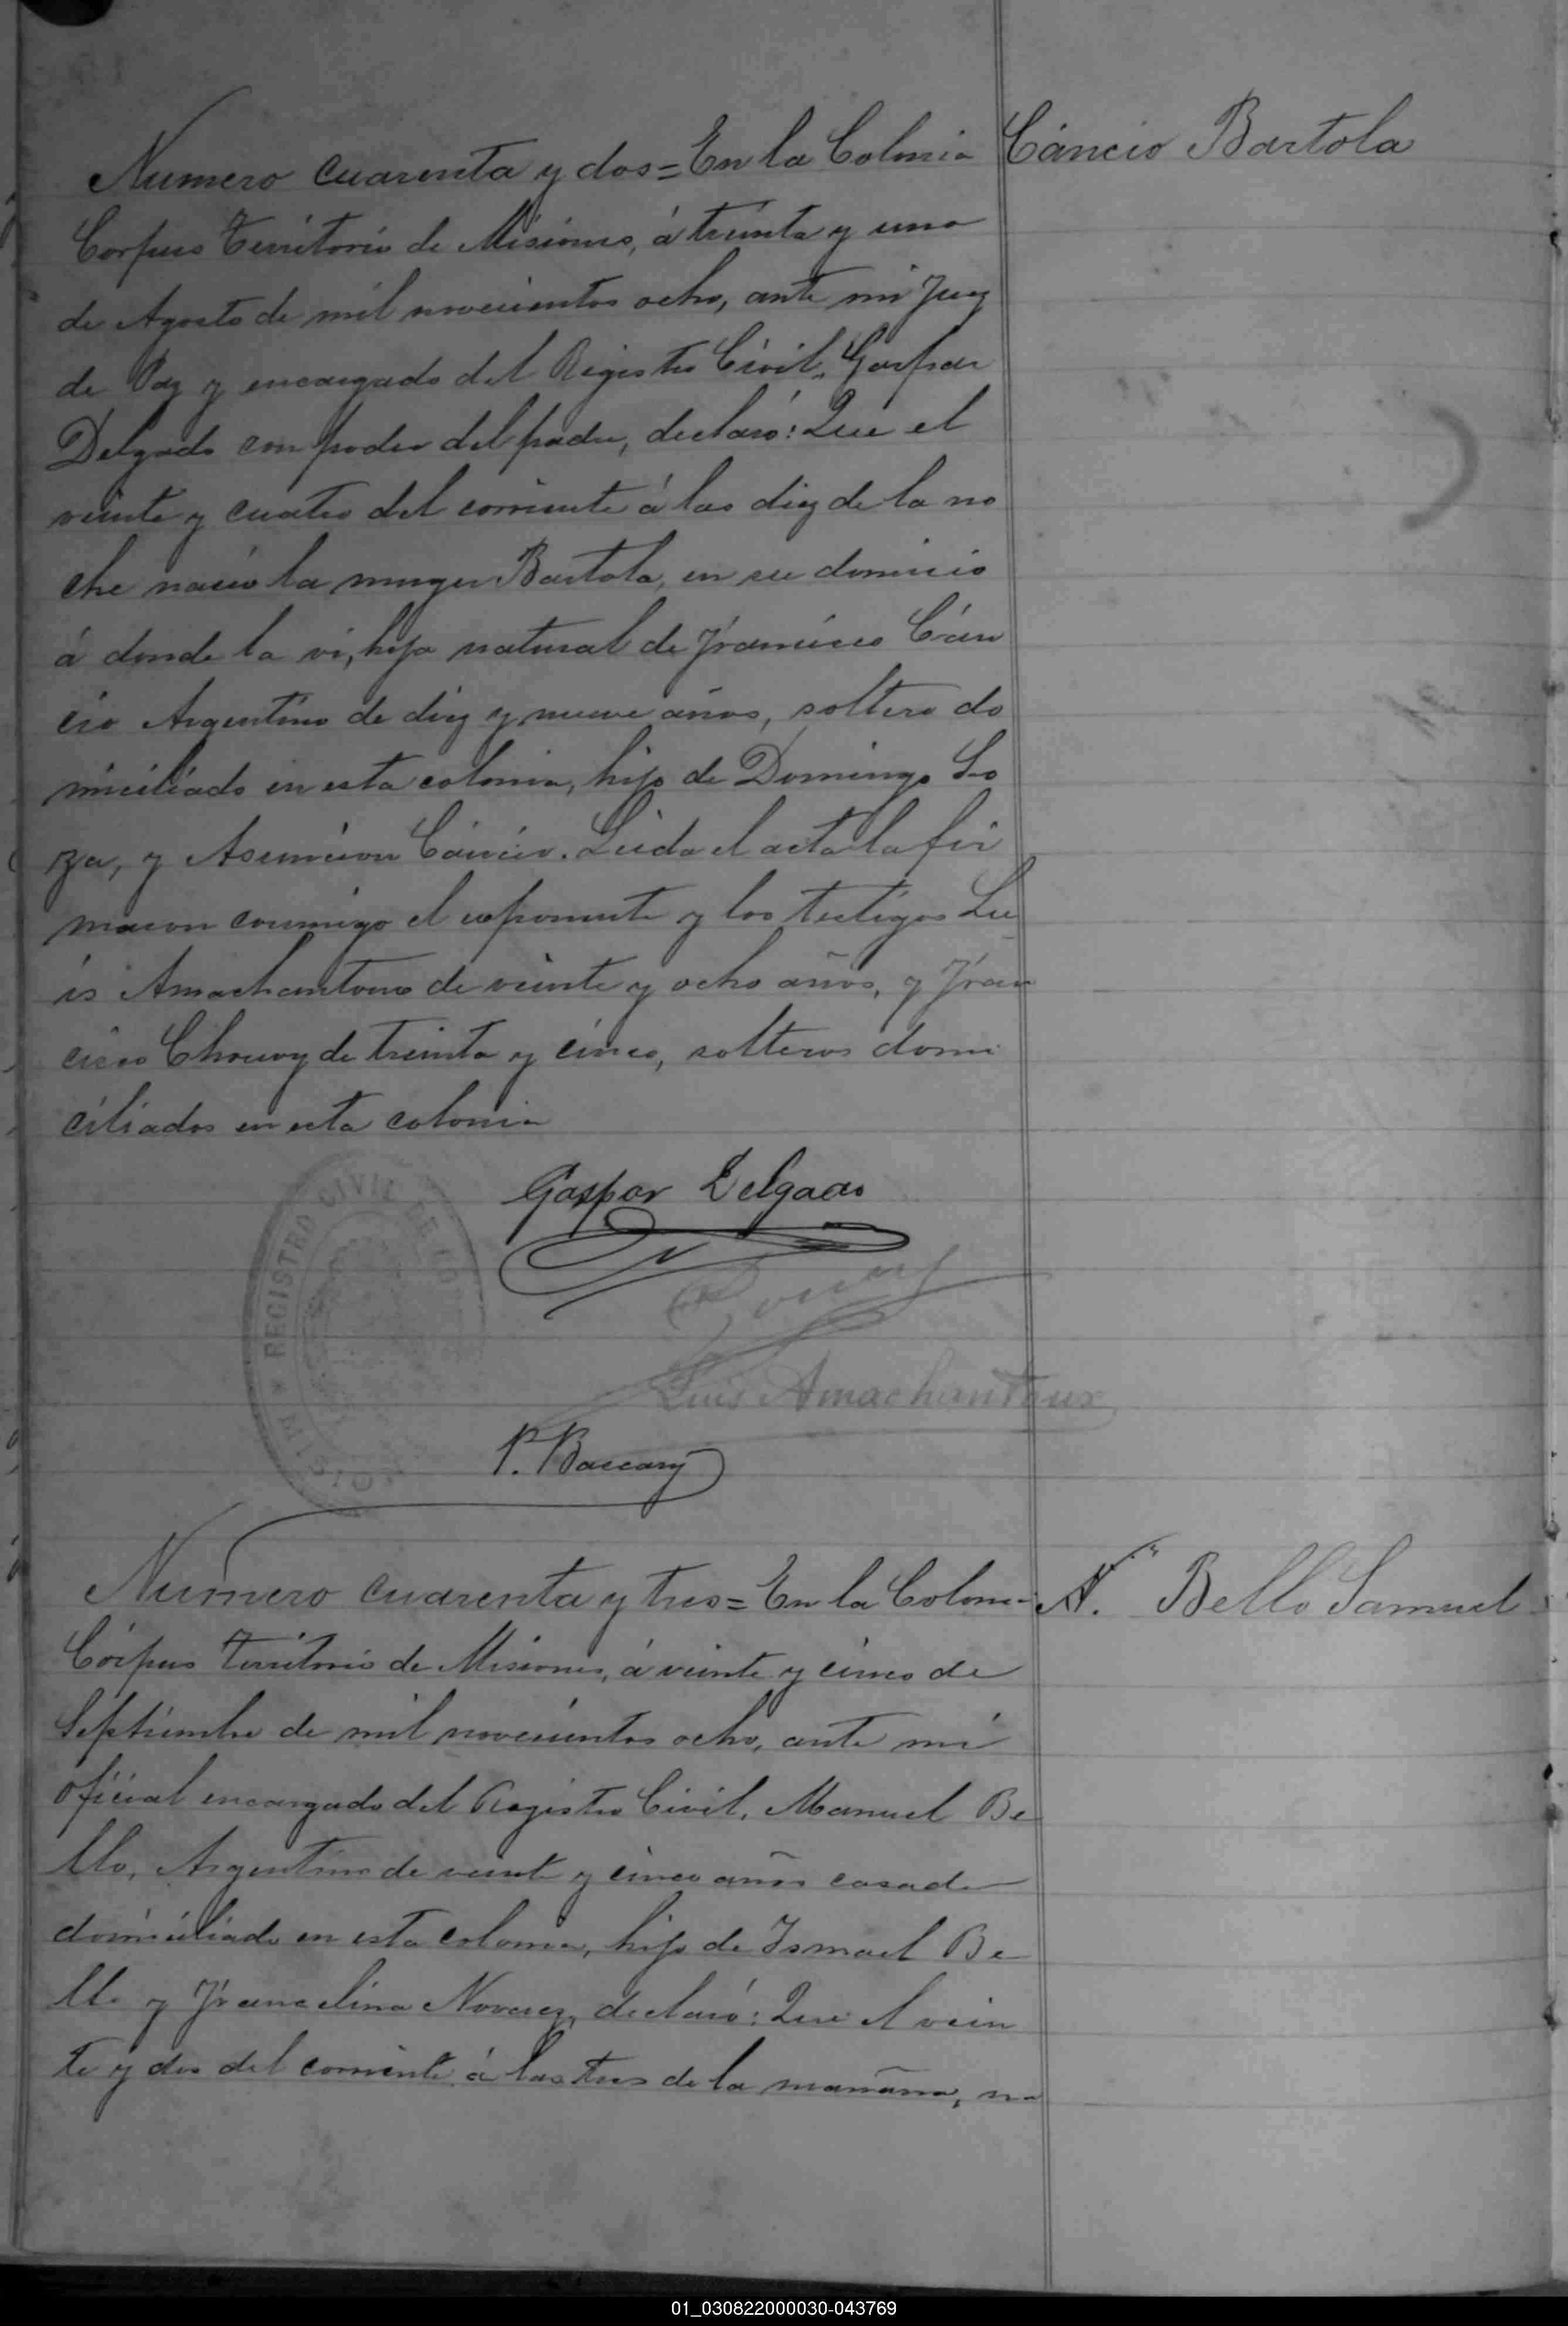 Cáncio Bartola
Numero cuarenta y dos = En la Colonia
Corpus Territorio de Misiones, á treinta y uno
de Agosto de mil novecientos ocho, ante mi Juez
de Paz y encargado del Registro Civil, Gaspar
Delgado con poder del padre, declaró: Que el
veinte y cuatro del corriente á las diez de la no
che nació la muger Bartola, en su domicio
á donde la vi, hija natural de Francisco Cán
cio Argentino de diez y nueve años, soltero do
miciliado en esta colonia, hijo de Domingo So
za, y Asuncion Cáncio. Leida el acta la fir
maron conmigo el esponente y los testigos Lu
is Amachantoux de veinte y ocho años, y Fran
cisco Chouvy de treinta y cinco, solteros domi
ciliados en esta colonia
Gaspar Delgado
Luis Amachantoux
P. Baccary
REGISTRO CIVIL DE CO
MISIO
N. Bello Samuel
Numero cuarenta y tres = En la Coloni
Córpus Territorio de Misiones, á veinte y cinco de
Septiembre de mil novecientos ocho, ante mi
oficial encargado del Registro Civil, Manuel Be
llo, Argentino de veinte y cinco años casado
domiciliado en esta colonia, hijo de Ismael Be
llo y Francelina Novarez, declaró: Que el vein
te y dos del corriente á las tres de la mañana, na
01_030822000030-043769